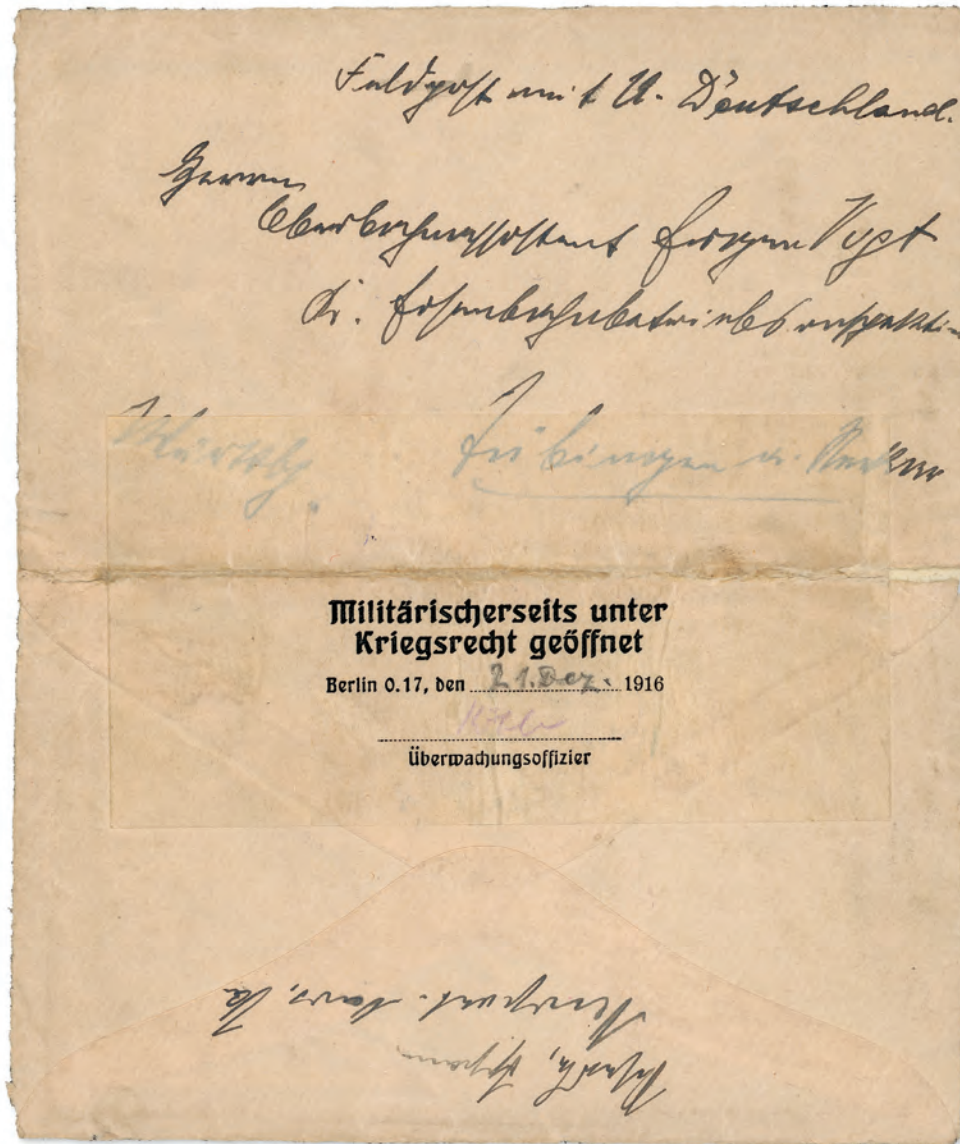 Feldpost mit U. Deutschland.
Herrn
Oberbahnassistent Eugen Vogt
K. Eisenbahnbetriebsinspektion
Württbg. Tübingen a. Neckar
Militärischerseits unter
Kriegsrecht geöffnet
Berlin O.17, den 21. Dez. 1916
Überwachungsoffizier